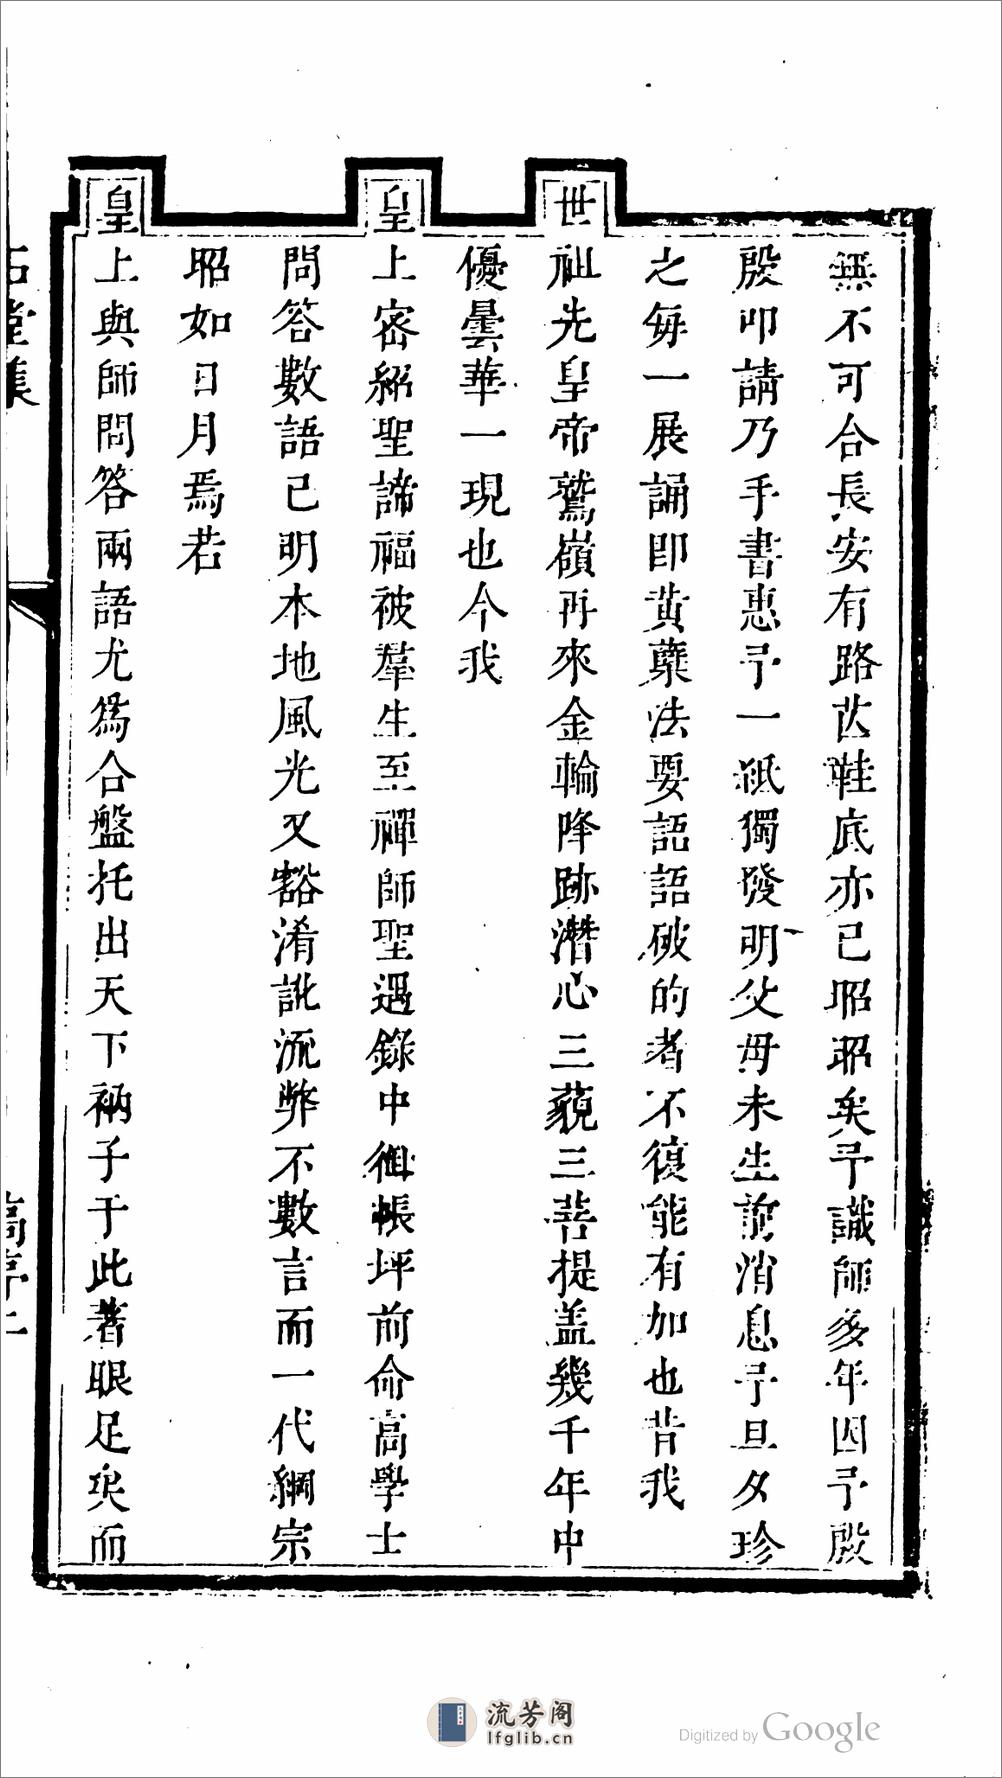 無不可合長安有路芒鞋底亦已昭昭矣予識師多年因予殷
殷叩請乃手書惠予一紙獨發明父母未生前消息予旦夕珍
之每一展誦即黃蘗法要語語破的者不復能有加也昔我
世祖先皇帝鷲嶺再來金輪降跡潛心三藐三菩提蓋幾千年中
優曇華一現也今我
皇上密紹聖諦福被羣生至禪師聖遇錄中御帳坪前命高學士
問答數語已明本地風光又豁淆訛流弊不數言而一代綱宗
昭如日月焉若
皇上與師問答兩語尤為合盤托出天下衲子于此著眼足矣而
石堂集
高序二
流芳阁
lfglib.cn
Digitized by Google